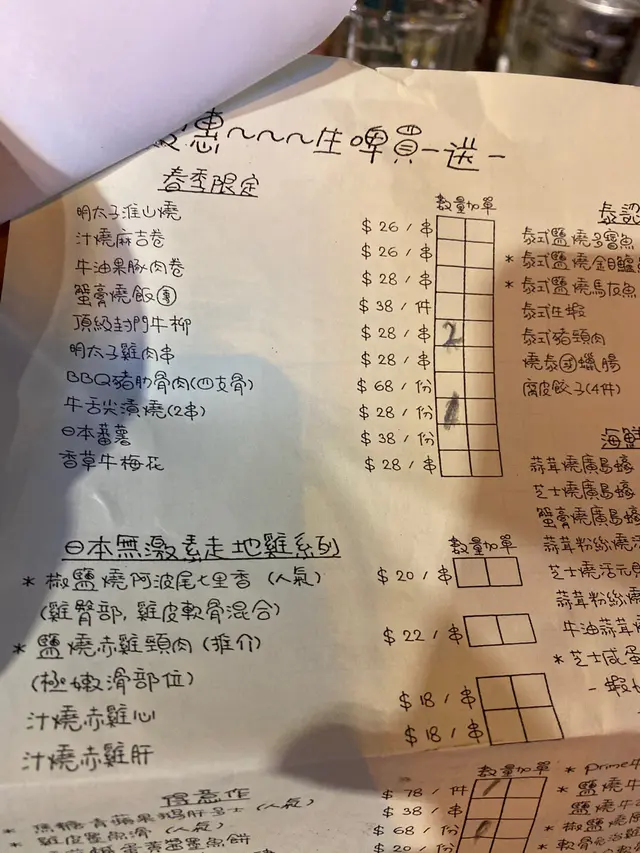 惠~~~生啤買一送一
春季限定 數量加單
明太子淮山燒 $ 26 / 串
汁燒麻吉卷 $ 26 / 串
牛油果豚肉卷 $ 28 / 串
蟹膏燒飯團 $ 38 / 件
頂級封門牛柳 $ 28 / 串 2
明太子雞肉串 $ 28 / 串
BBQ豬肋骨肉(四支骨) $ 68 / 份
牛舌尖漬燒(2串) $ 28 / 份 1
日本蕃薯 $ 38 / 份
香草牛梅花 $ 28 / 串
日本無激素走地雞系列 數量加單
* 椒鹽燒阿波尾七里香 (人氣) $ 20 / 串
(雞臀部, 雞皮軟骨混合)
* 鹽燒赤雞頸肉 (推介) $ 22 / 串
(極嫩滑部位)
汁燒赤雞心 $ 18 / 串
汁燒赤雞肝 $ 18 / 串
得意作 數量加單
* 焦糖青蘋果鵝肝多士 (人氣) $ 78 / 件
* 雞皮墨魚滑 (人氣) $ 38 / 串
$ 68 / 份
$ 20 / 份
泰式鹽燒多寶魚
* 泰式鹽燒金目鱸
* 泰式鹽燒馬友魚
泰式生蝦
泰式豬頸肉
燒泰國臘腸
腐皮餃子(4件)
海鮮
蒜茸燒廣島蠔
芝士燒廣島蠔
蟹膏燒廣島蠔
蒜茸粉絲燒
芝士燒活元
蒜茸粉絲燒
牛油蒜茸
* 芝士咸蛋
- 蝦
* Prime牛
* 鹽燒牛
鹽燒牛
* 椒鹽燒
* 軟骨